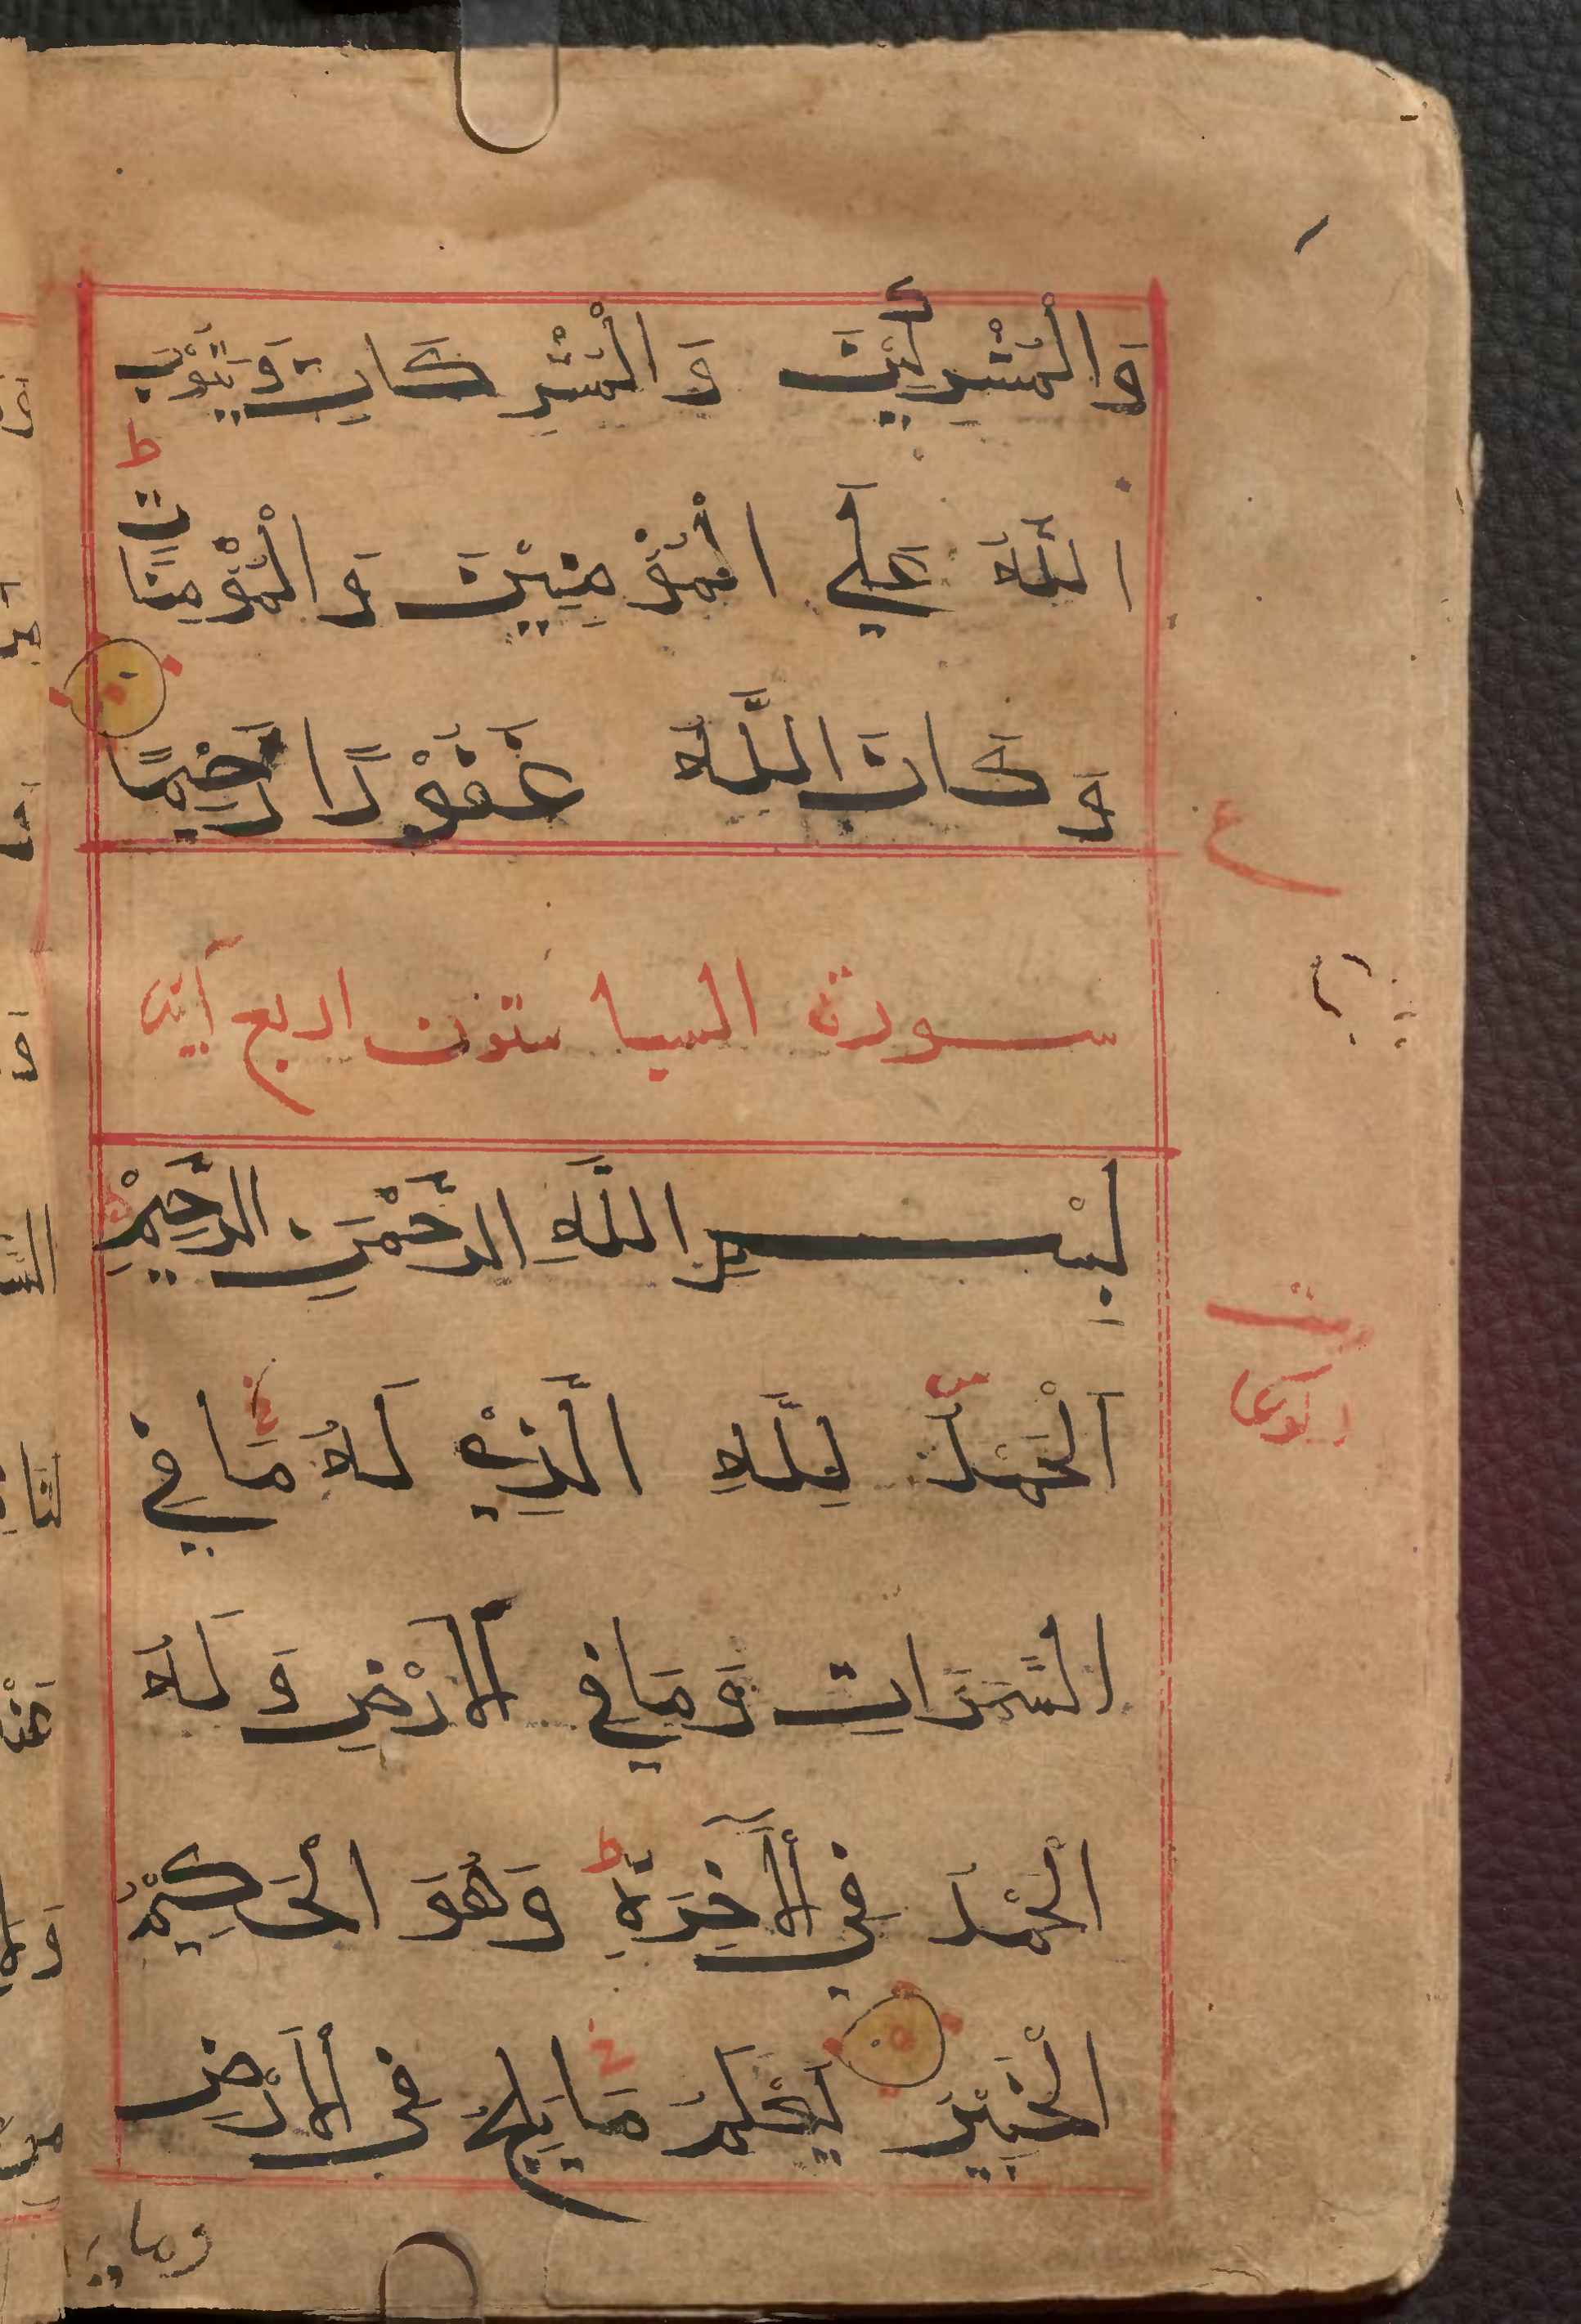 وَالْمُشْرِكِيْنَ وَالْمُشْرِكَاتِ وَيَتُوْبَ
اللَّهُ عَلَي الْمُؤْمِنِيْنَ وَالْمُؤْمِنَاتِ ط
وَكَانَ اللَّهُ غَفُوْرًا رَحِيْمًا
ع
سورة السبا ستون اربع آية
بِسْمِ اللَّهِ الرَّحْمٰنِ الرَّحِيْمِ
اَلْحَمْدُ لِلَّهِ الَّذِيْ لَهُ مَا فِي
السَّمَوَاتِ وَمَا فِي الْاَرْضِ وَلَهُ
الْحَمْدُ فِي الْآخِرَةِ ط وَهُوَ الْحَكِيْمُ
الْخَبِيْرُ يَعْلَمُ مَا يَلِجُ فِي الْاَرْضِ
وما